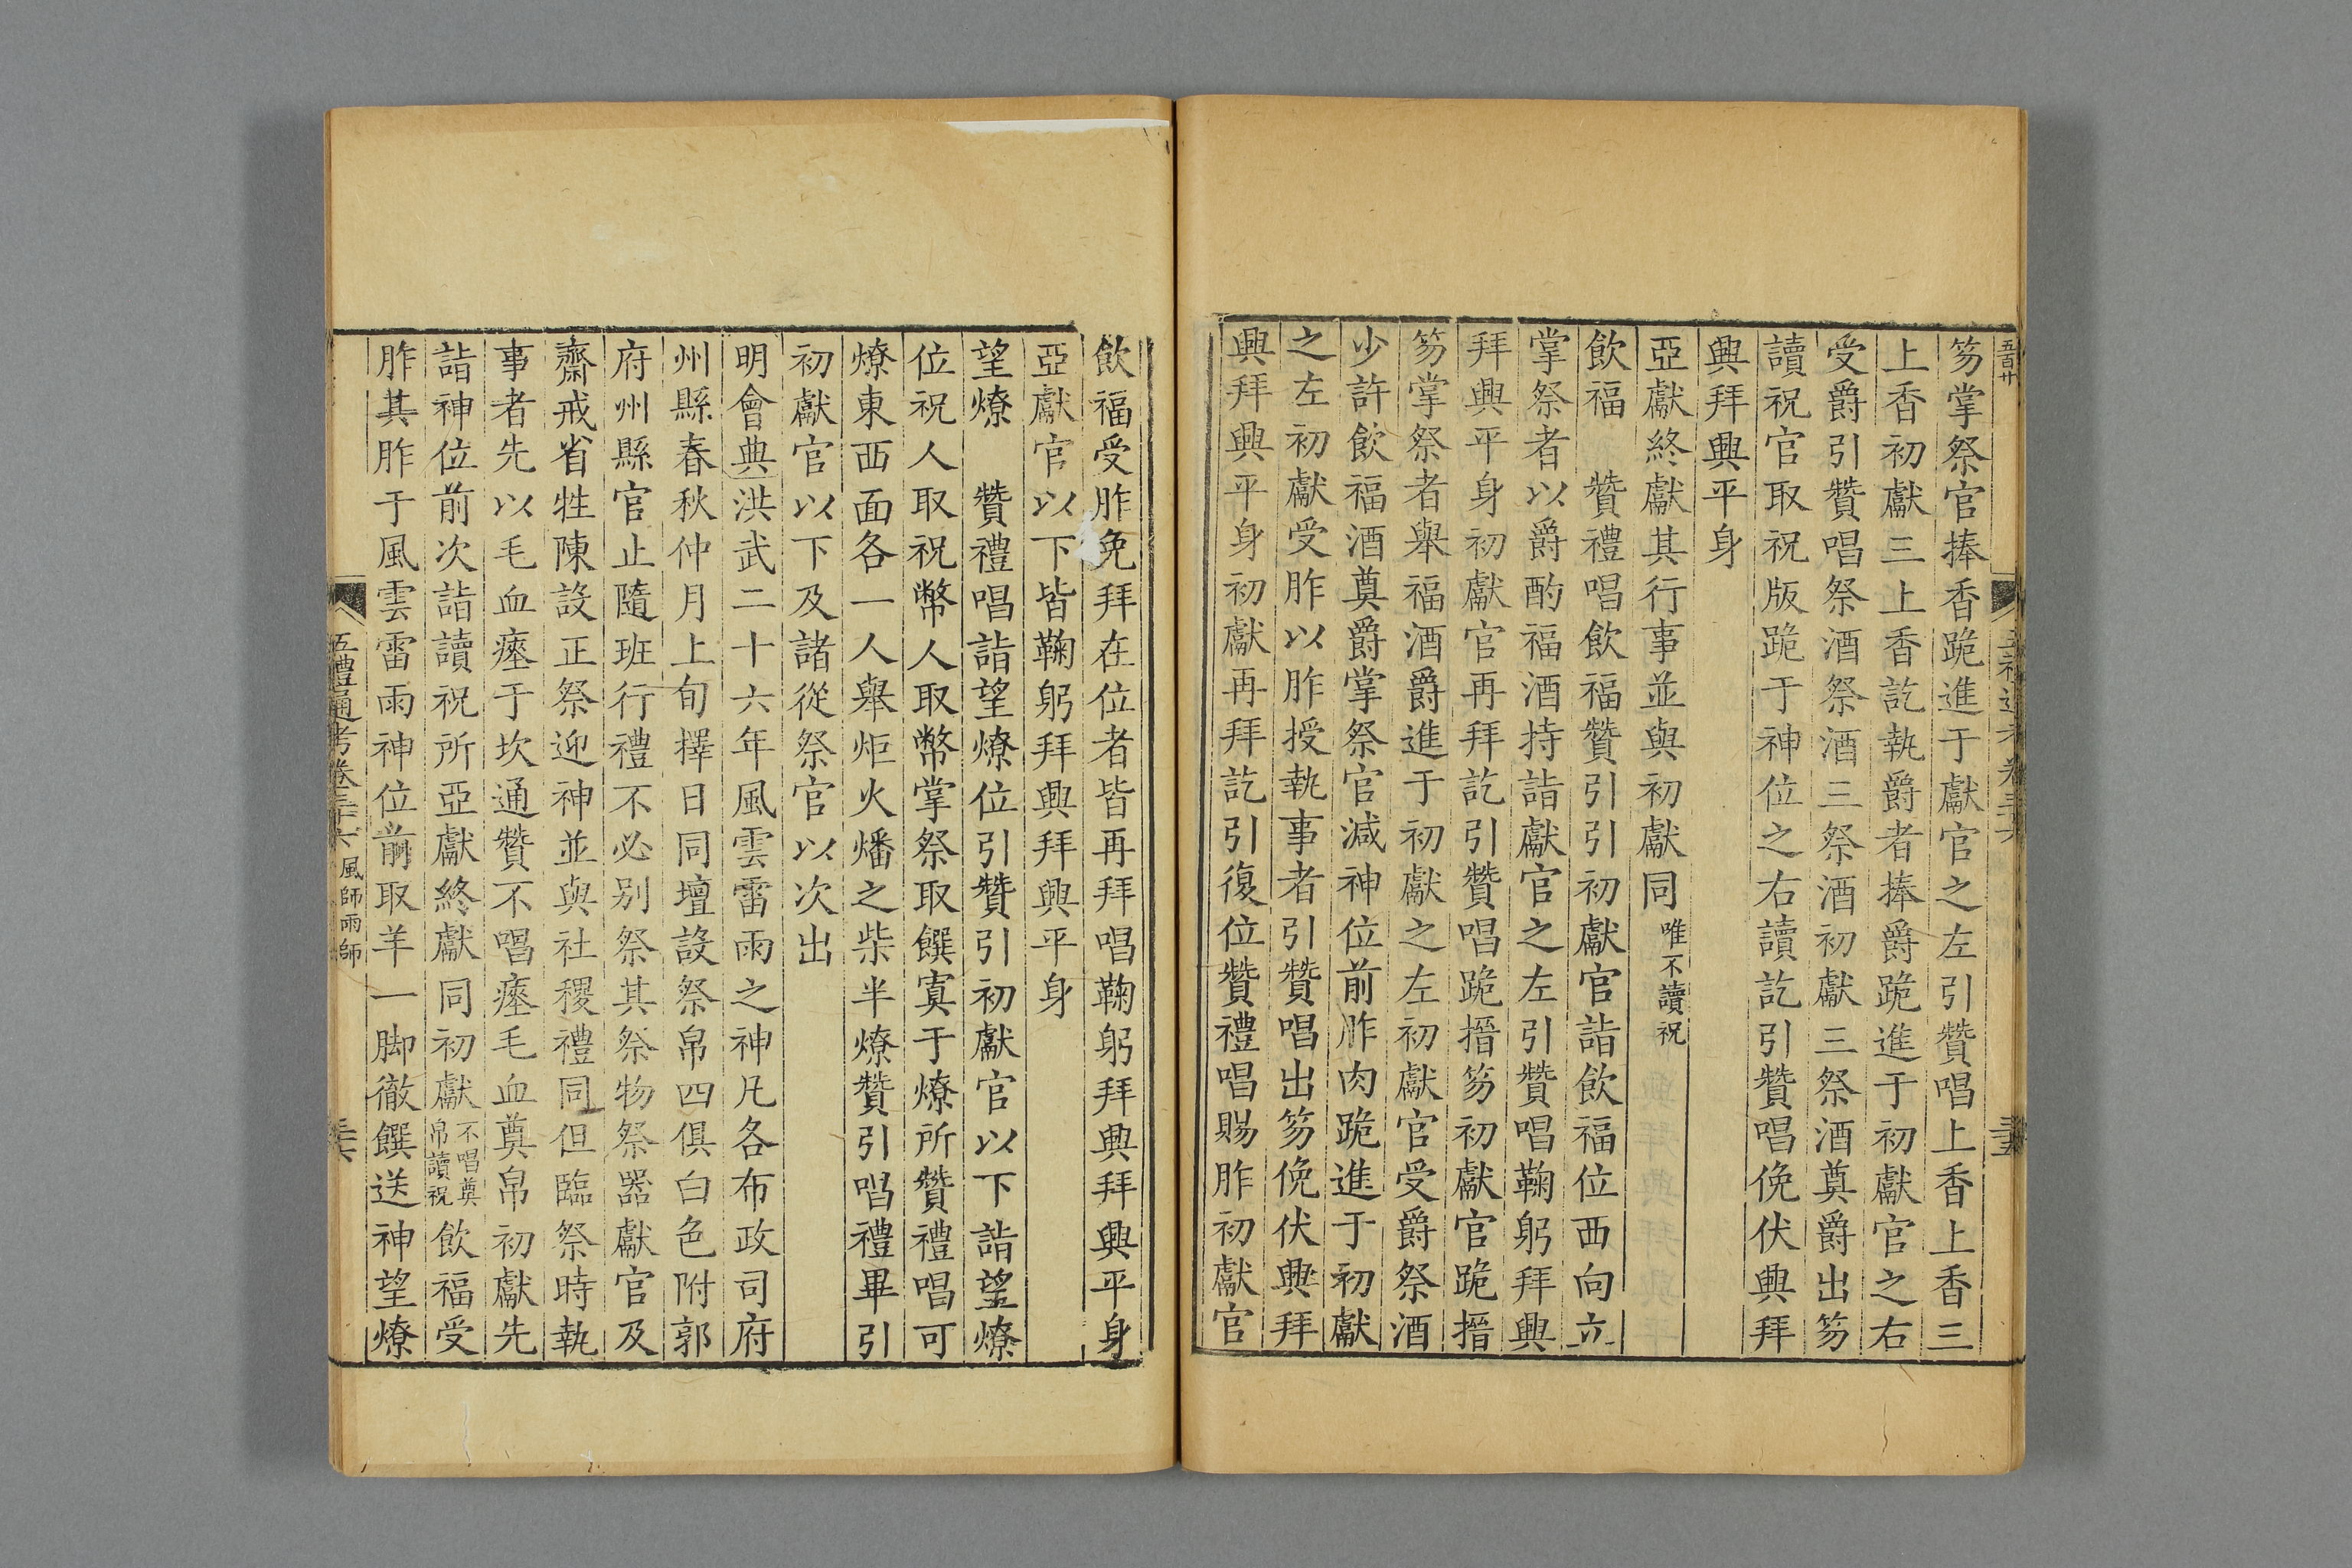 五百廿
笏掌祭官捧香跪進于獻官之左引贊唱上香上香三
上香初獻三上香訖執爵者捧爵跪進于初獻官之右
受爵引贊唱祭酒祭酒三祭酒初獻三祭酒奠爵出笏
讀祝官取祝版跪于神位之右讀訖引贊唱俛伏興拜
興拜興平身
亞獻終獻其行事並與初獻同唯不讀祝
飲福　贊禮唱飲福贊引引初獻官詣飲福位西向立
掌祭者以爵酌福酒持詣獻官之左引贊唱鞠躬拜興
拜興平身初獻官再拜訖引贊唱跪搢笏初獻官跪搢
笏掌祭者舉福酒爵進于初獻之左初獻官受爵祭酒
少許飲福酒奠爵掌祭官減神位前胙肉跪進于初獻
之左初獻受胙以胙授執事者引贊唱出笏俛伏興拜
興拜興平身初獻再拜訖引復位贊禮唱賜胙初獻官
飲福受胙免拜在位者皆再拜唱鞠躬拜興拜興平身
亞獻官以下皆鞠躬拜興拜興平身
望燎　贊禮唱詣望燎位引贊引初獻官以下詣望燎
位祝人取祝幣人取幣掌祭取饌寘于燎所贊禮唱可
燎東西面各一人舉炬火燔之柴半燎贊引唱禮畢引
初獻官以下及諸從祭官以次出
明會典洪武二十六年風雲雷雨之神凡各布政司府
州縣春秋仲月上旬擇日同壇設祭帛四俱白色附郭
府州縣官止隨班行禮不必别祭其祭物祭器獻官及
齋戒省牲陳設正祭迎神並與社稷禮同但臨祭時執
事者先以毛血瘞于坎通贊不唱瘞毛血奠帛初獻先
詣神位前次詣讀祝所亞獻終獻同初獻不唱奠帛讀祝飲福受
胙其胙于風雲雷雨神位前取羊一脚徹饌送神望燎
五禮通考卷三十六 風師雨師